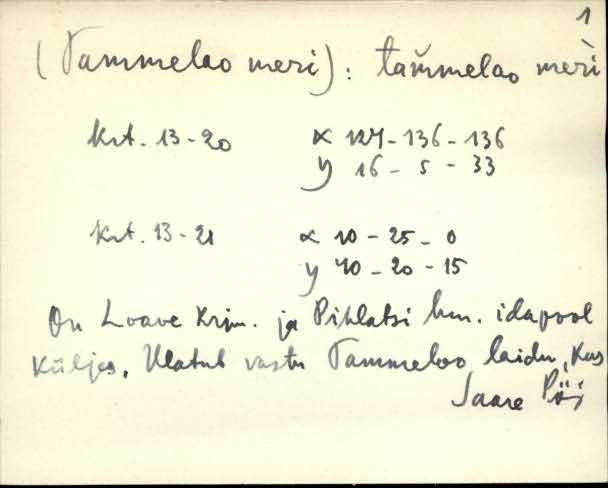 1
(Tammelao meri): tam̆melao, meri
krt. 13-20 x 127-136-136
y 16-5-33
krt. 13-21 x 10-25-0
y 40-20-15
On Loave krjm. ja Pihlatsi hm. idapool
küljes. Ulatub vastu Tammeloo laidu,
Saare Pöi